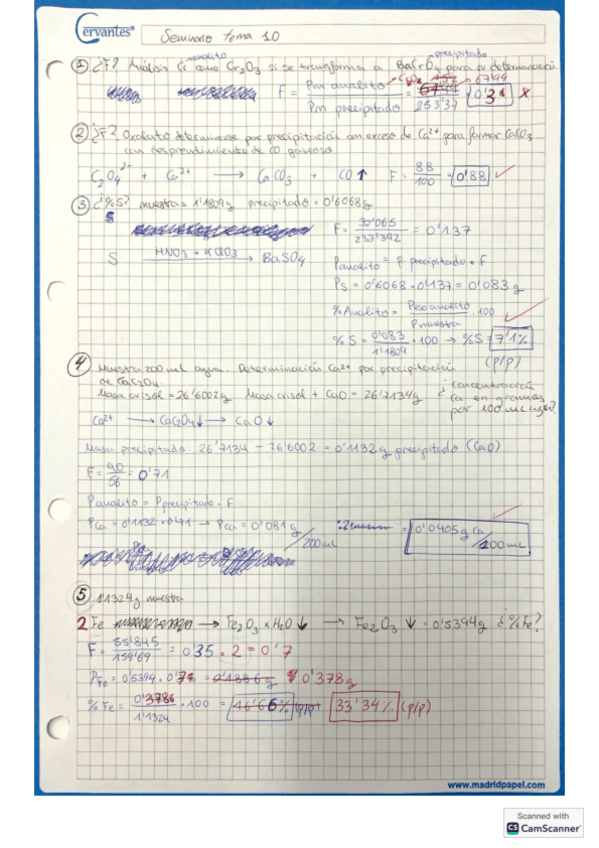 Cervantes
Seminario tema 10
analito precipitado
① ¿F? Análisis Cr como Cr₂O₃ si se transforma a BaCrO₄ para su determinación
F = Pm analito / Pm precipitado = / 253'37 = 0'3 x
Cr₂O₃ 152 67'99
② ¿F? Oxalato determinarse por precipitación con exceso de Ca²⁺ para formar CaCO₃
con desprendimiento de CO gaseoso
C₂O₄²⁻ + Ca²⁺ → CaCO₃ + CO↑ F = 88/100 = 0'88
③ ¿%S? muestra = 1'1809g precipitado = 0'6068g
F = /233'392 = 0'137
S HNO₃ + KClO₃ → BaSO₄
P analito = P precipitado · F
Ps = 0'6068 · 0'137 = 0'083 g
% Analito = Peso analito / P muestra · 100
% S = 0'083 / 1'1809 · 100 → %S = 7'1%
(p/p)
④ Muestra 200 mL agua. Determinación Ca²⁺ por precipitación
de CaC₂O₄
Masa crisol = 26'6002g Masa crisol + CaO = 26'7134g ¿concentración
Ca en gramos
por 100 mL agua?
Ca²⁺ → CaC₂O₄↓ → CaO↓
Masa precipitado: 26'7134 - 26'6002 = 0'1132 g precipitado (CaO)
F = 40/56 = 0'71
P analito = P precipitado · F
P Ca = 0'1132 · 0'71 → P Ca = 0'081 g/200mL = 0'0405g Ca/100mL
⑤ 1'1324g muestra
2 Fe → Fe₂O₃ x H₂O ↓ → Fe₂O₃ ↓ = 0'5394g ¿%Fe?
F = 55'845/159'69 = 0'35 · 2 = 0'7
P Fe = 0'5394 · 0'7 = 0'378g
% Fe = 0'378/1'1324 · 100 = 33'34% (p/p)
www.madridpapel.com
Scanned with
CS CamScanner